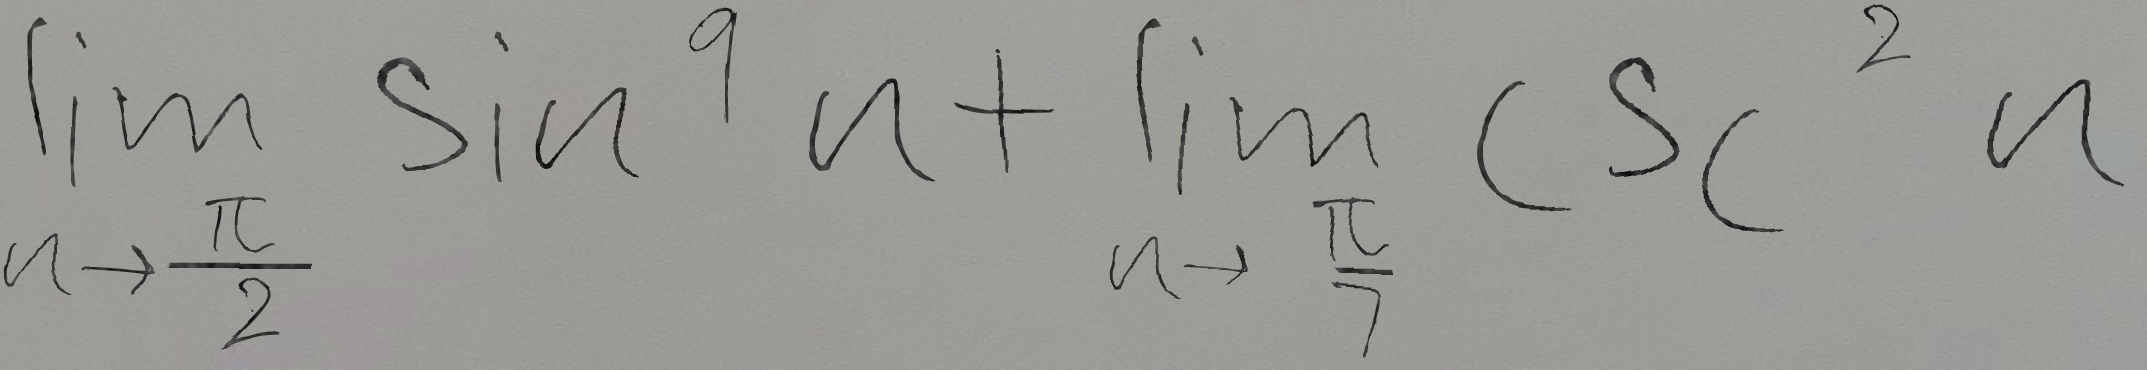 lim_{n→π/2} sin^9 n + lim_{n→π/7} csc^2 n